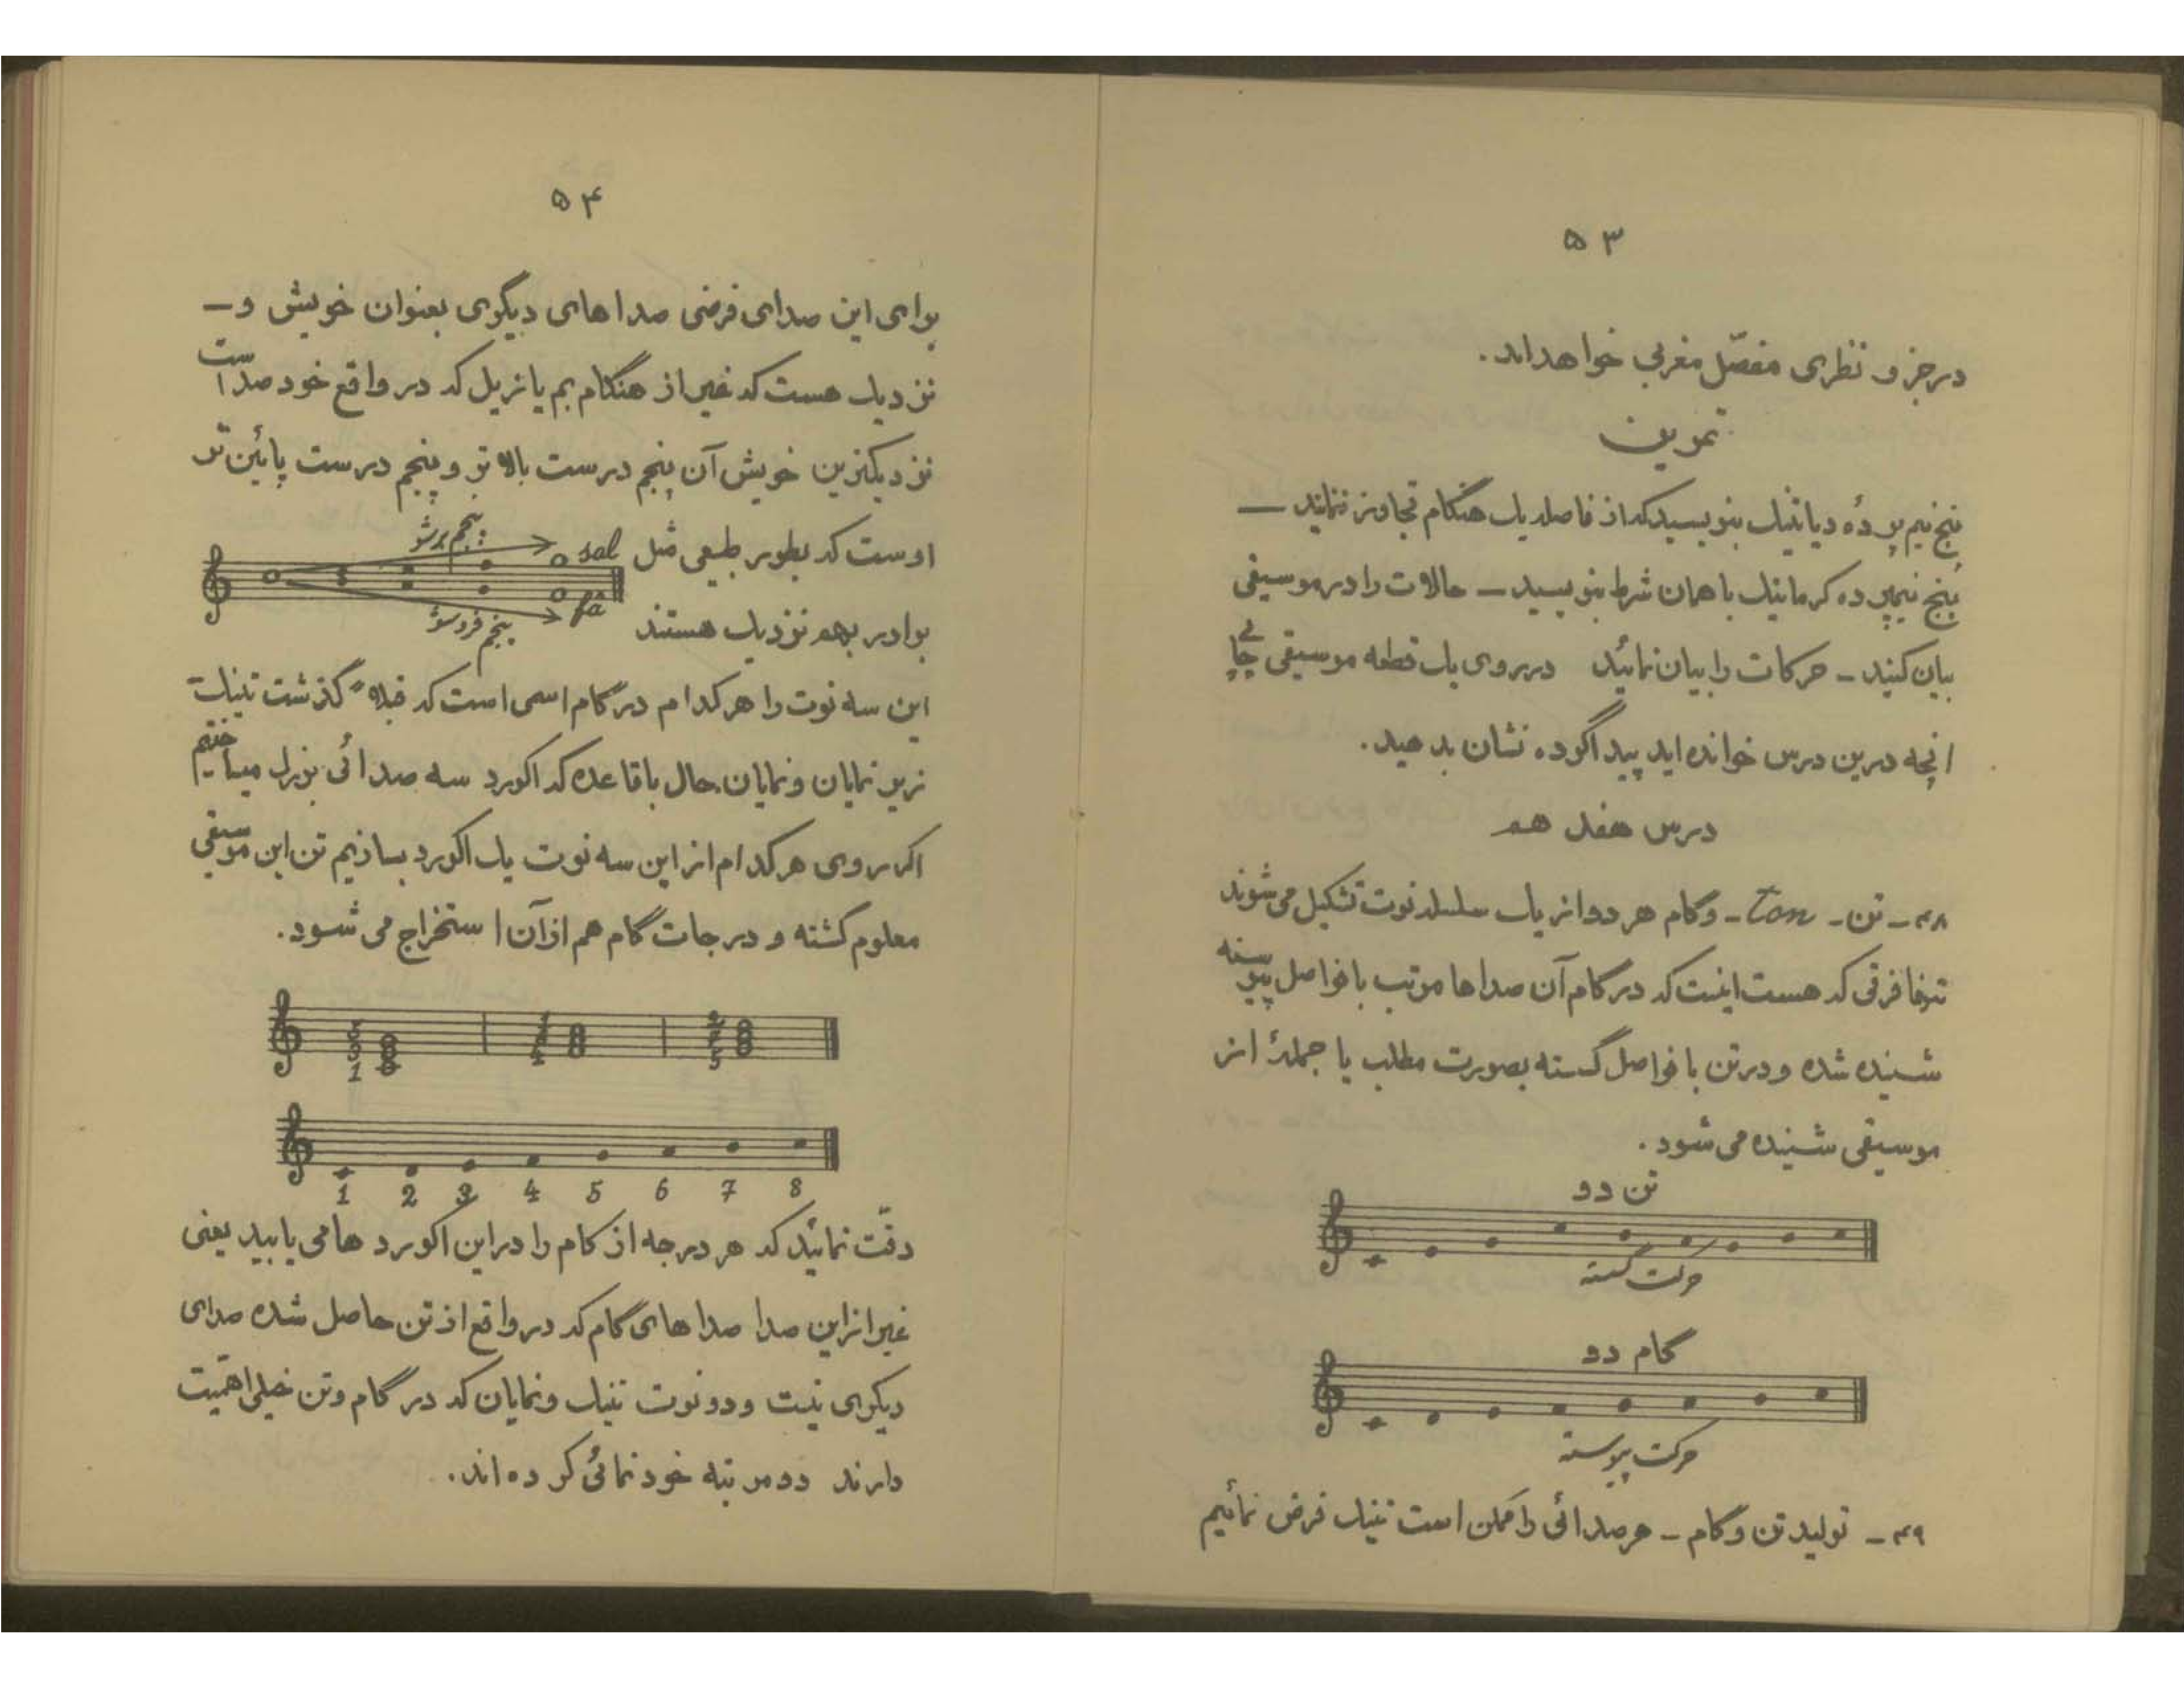 ۵۳
در جزو نظری مفصّل مغربی خواهد اند.
تمرین
پنج نیم پرده دیاتنیک بنویسید که از فاصله یک هنگام تجاوز ننماید —
پنج نیم‌پرده کرماتیک با همان شرط بنویسید — حالات را در موسیقی
بیان کنید — حرکات را بیان نمائید در روی یک قطعه موسیقی چاپی
انچه درین درس خوانده اید پیدا کرده نشان بدهید.
درس هفدهم
۴۸ – تن – Ton – و گام هر دو از یک سلسله نوت تشکیل می‌شوند
تنها فرقی که هست اینست که در گام آن صداها مرتب با فواصل پیوسته
شنیده شده و در تن با فواصل گسسته بصورت مطلب یا جملهٔ از
موسیقی شنیده می شود.
تن دو
حرکت گسسته
گام دو
حرکت پیوسته
۴۹ – تولید تن و گام – هر صدائی را ممکن است تنیک فرض نمائیم
۵۴
برای این صدای فرضی صداهای دیگری بعنوان خویش و –
نزدیک هست که غیر از هنگام بم یا زیل که در واقع خود صداست
نزدیکترین خویش آن پنجم درست بالاتر و پنجم درست پائین تر
اوست که بطور طبیعی مثل
پنجم برشو
sol
fa
پنجم فروسو
برادر بهم نزدیک هستند
این سه نوت را هر کدام در گام اسمی است که قبلاً گذشت تنیک
زیر نمایان و نمایان حال با قاعده که اکورد سه صدائی بزرک میساختیم
اکر روی هر کدام از این سه نوت یک اکورد بسازیم تن این موسیقی
معلوم کشته و درجات گام هم از آن استخراج می شود.
1 2 3 4 5 6 7 8
دقّت نمائید که هر درجه از کام را در این اکورد ها می یابید یعنی
غیر از این صدا صداهای گام که در واقع از تن حاصل شده صدای
دیکری نیست و دو نوت تنیک و نمایان که در گام و تن خیلی اهمّیت
دارند دو مرتبه خودنمائی کرده اند.